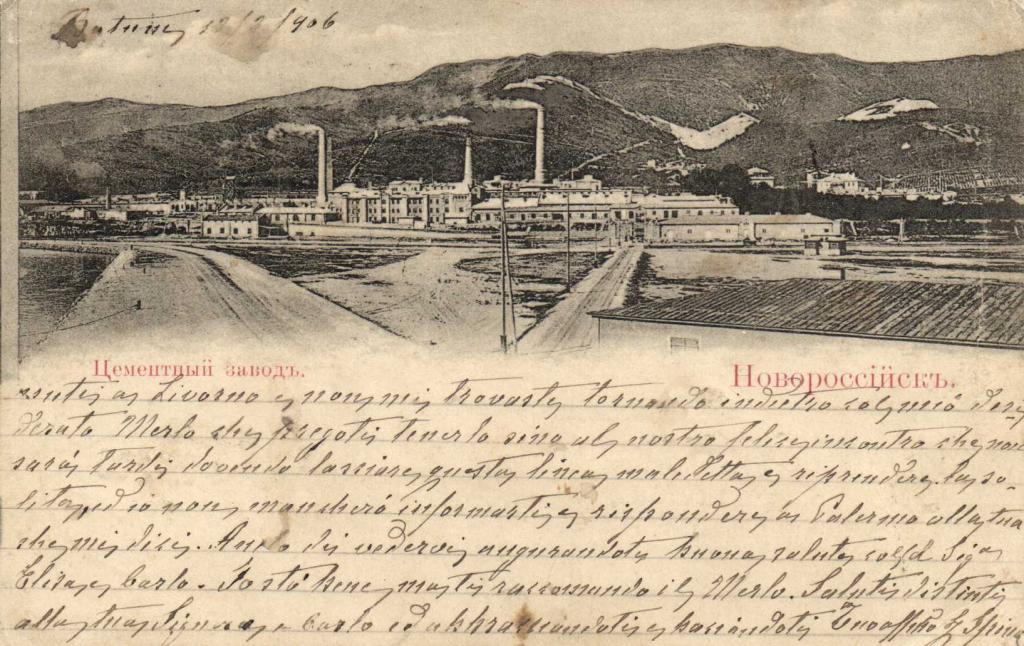 Batum 12/2/906
Цементный заводъ.
Новороссійскъ.
a Livorno e non mi trovasti tornando indietro col mio
Merlo che pregoti tenerlo sino al nostro felice incontro che non
sará tardi dovendo lasciare questa linea maledetta e riprendere la so-
lita, ed io non mancheró informarti e rispondere a Palermo alla tua
che mi dici. Anco di vedervi augurandoti buona salute col Sig.a
Elisa e Carlo. Io stó bene, ma ti raccomando il Merlo. Saluti distinti
alla tua Signora e Carlo ed abbracciandoti e baciandoti